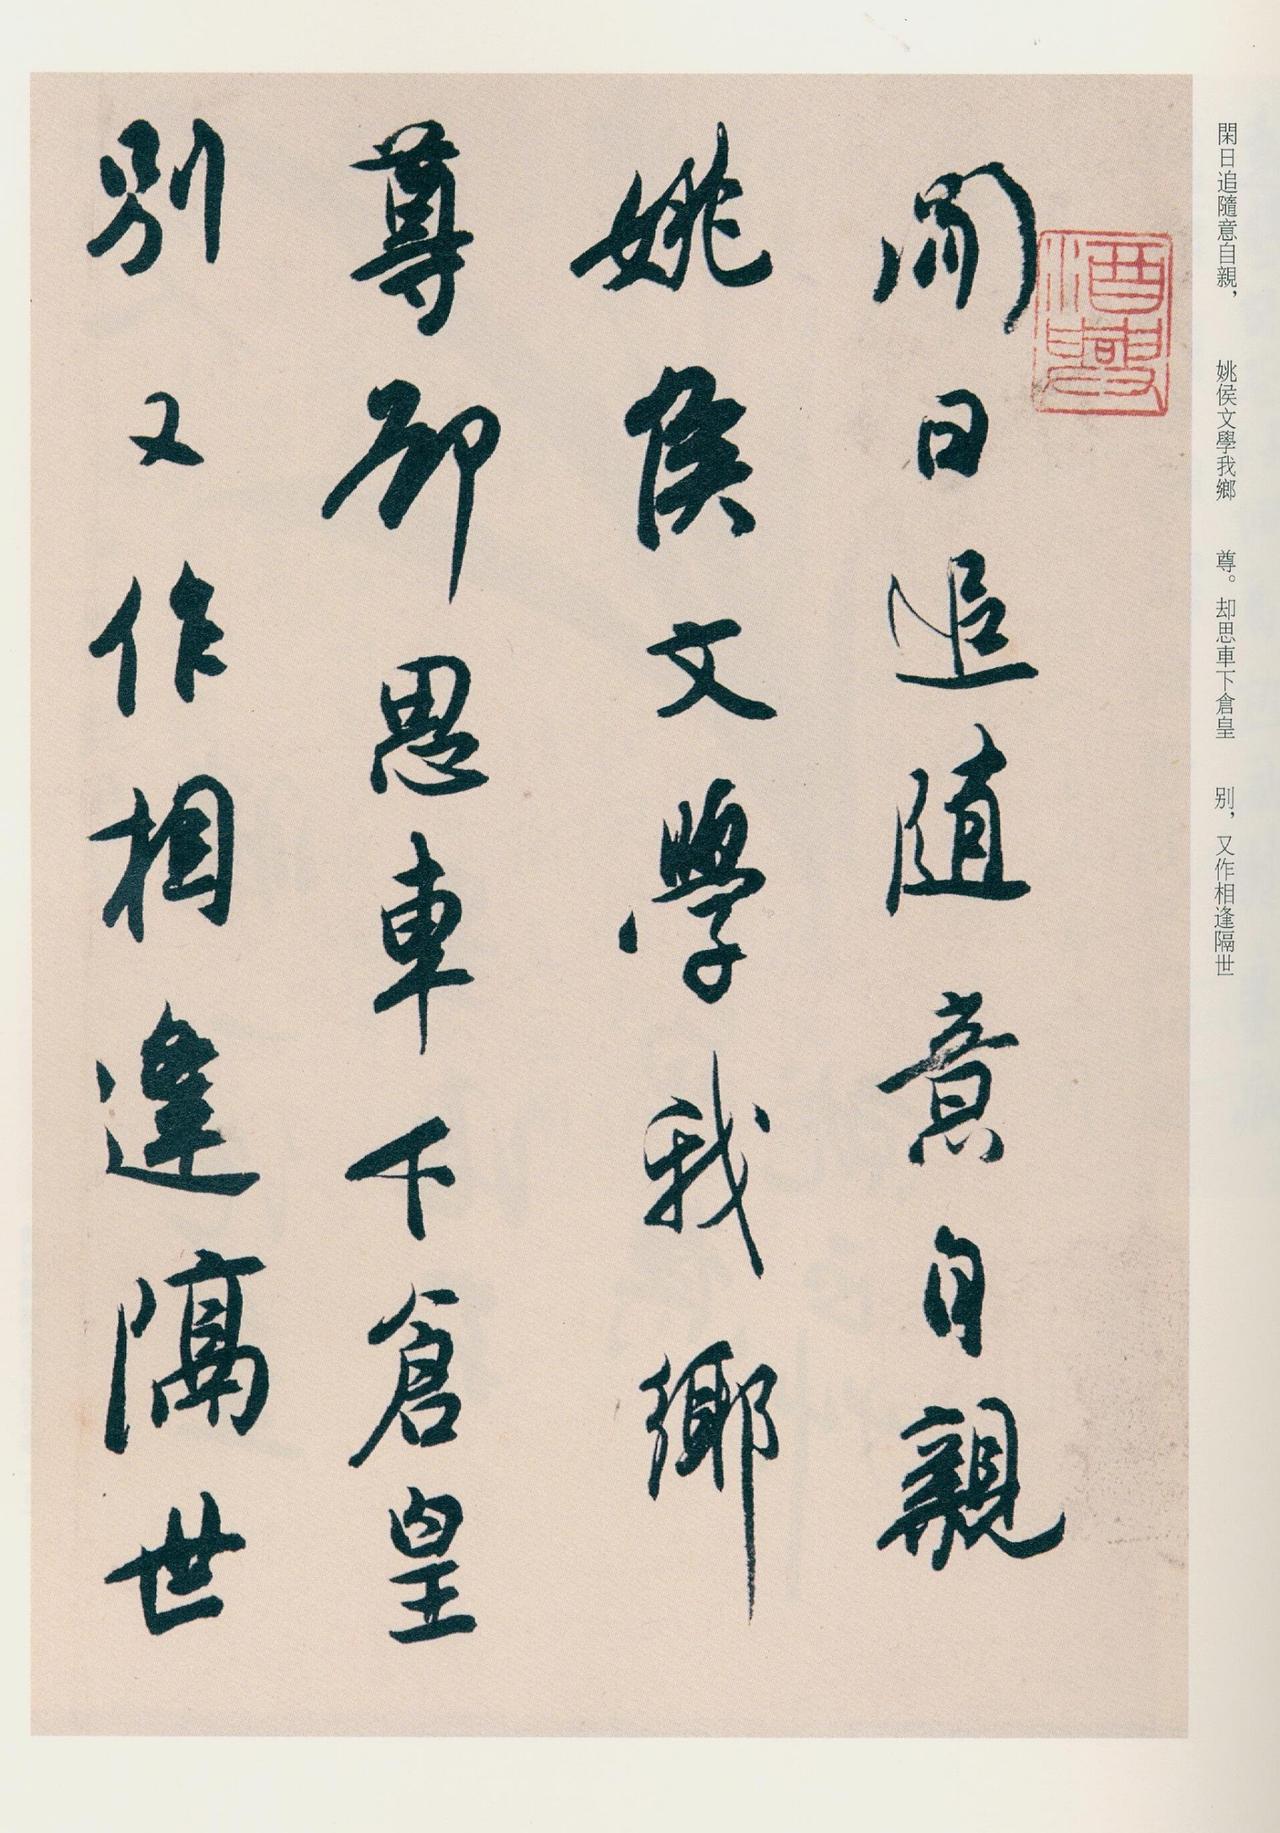 閑日追隨意自親，　姚侯文學我鄉　尊。却思車下倉皇　别，又作相逢隔世
閒日追隨意自親
姚侯文學我鄉
尊却思車下倉皇
别又作相逢隔世